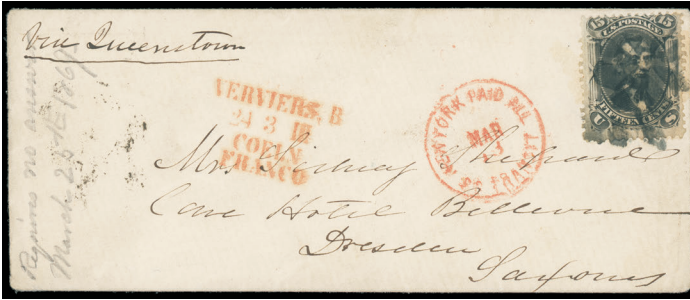 Via Queenstown
Requires no answer
March 25th 1867
VERVIERS, B
24 3
COELN
FRANCO
NEW YORK PAID ALL
MAR
TRANSIT
15 15
U.S. POSTAGE
FIFTEEN CENTS
U S
Mrs Sidney Shepard
Care Hotel Bellevue
Dresden
Saxony